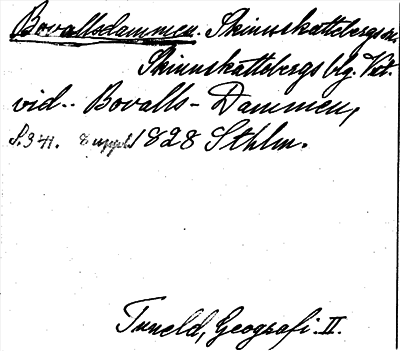 Bovallsdammen. Skinnskattebergs sn
Skinnskattebergs blg. Vst.
vid -- Bovalls-Dammen,
S. 341. 8 uppl. 1828 Sthlm.
Tuneld, Geografi. II.